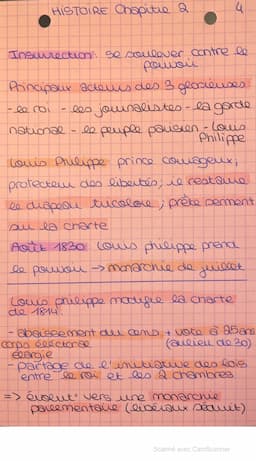 HISTOIRE Chapitre 2
4
Insurrection : se soulever contre le
pouvoir
Principaux acteurs des 3 glorieuses
- le roi - les journalistes - la garde
national - le peuple parisien - Louis
Philippe
Louis Philippe prince courageux,
protecteur des libertés ; il restaure
le drapeau tricolore ; prête serment
sur la charte
Août 1830 Louis philippe prend
le pouvoir → monarchie de juillet
Louis philippe modifie la charte
de 1814:
- abaissement du cens + vote à 25ans
corps électoral (au lieu de 30)
élargie
- partage de l'initiative des lois
entre le roi et les 2 chambres
=> évolut° vers une monarchie
parlementaire (libéraux séduit)
Scanné avec CamScanner